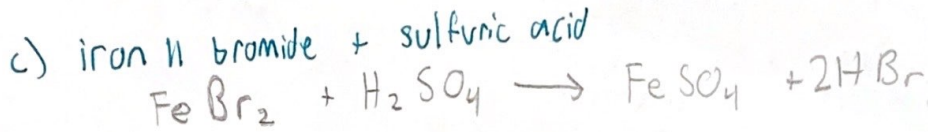 c) iron II bromide + sulfuric acid
FeBr₂ + H₂SO₄ → FeSO₄ + 2HBr